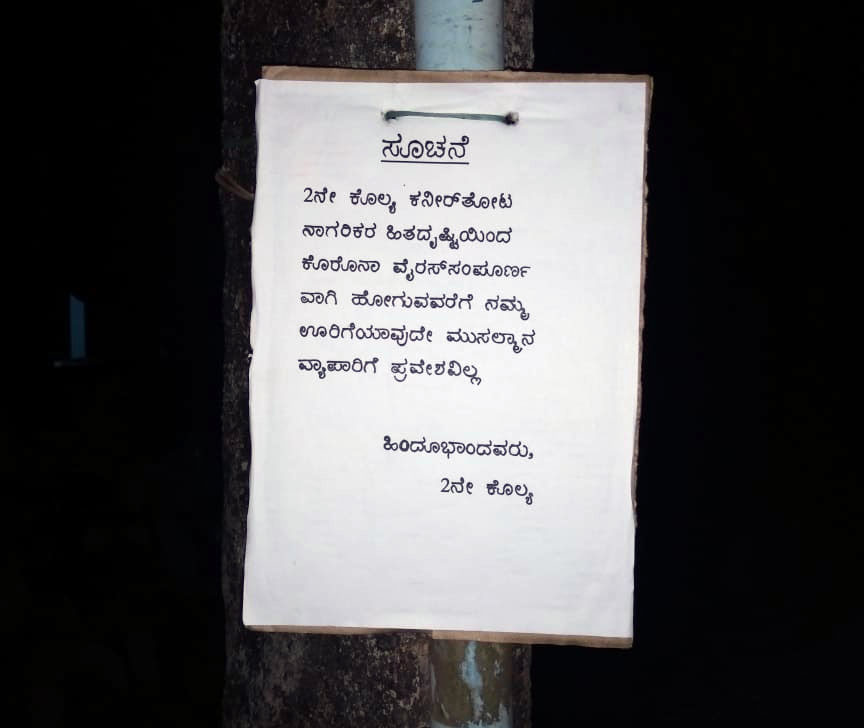 ಸೂಚನೆ
2ನೇ ಕೊಲ್ಯ ಕನೀರ್‌ತೋಟ
ನಾಗರಿಕರ ಹಿತದೃಷ್ಟಿಯಿಂದ
ಕೊರೊನಾ ವೈರಸ್‌ಸಂಪೂರ್ಣ
ವಾಗಿ ಹೋಗುವವರೆಗೆ ನಮ್ಮ
ಊರಿಗೆಯಾವುದೇ ಮುಸಲ್ಮಾನ
ವ್ಯಾಪಾರಿಗೆ ಪ್ರವೇಶವಿಲ್ಲ
ಹಿಂದೂಭಾಂದವರು,
2ನೇ ಕೊಲ್ಯ